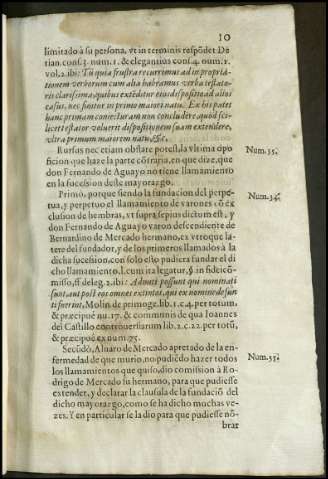 10
limitado à su persona, vt in terminis respõdet De
cian. cons. 3. num. 1. & elegantius cons. 4. num. 1.
vol. 2. ibi: Tū quia frustra recurrimus ad in propriá-
tionem verborum cum alia habeamus verba testato-
ris clarissima, quibus extēditur eius dispositio ad alios
casus, nec sonitur in primo maiori natu. Ex his patet
hanc primam coniecturam non concludere quòd sci-
licet testator voluerit dispositionem suam extendere,
vltra primum maiorem natu, &c.
Rursus nec etiam obstare potest la vltima opo
sicion que haze la parte cõtraria, en que dize, que
don Fernando de Aguayo no tiene llamamiento
en la sucession deste mayorazgo.
Num. 33.
Primò, porque siendo la fundacion del perpe-
tua, y perpetuo el llamamiento de varones cõ ex
clusion de hembras, vt supra sępius dictum est, y
don Fernando de Aguayo varon descendiente de
Bernardino de Mercado hermano, ex vtroque la-
tere del fundador, y de los primeros llamados à la
dicha sucesion, con solo esto pudiera fundar el di
cho llamamiento, l. cum ita legatur, §. in fideicõ-
misso, ff. de leg. 2. ibi: Admitti possunt qui nominati
sunt, aut post eos omnes extintos, qui ex nomine defun
cti fuerint, Molin. de primoge. lib. 1. c. 4. per totum,
& præcipuè nu. 17. & communis de qua Ioannes
del Castillo controuersiarum lib. 2. c. 22. per totũ,
& præcipuè ex num. 75.
Num. 34.
Secũdò, Aluaro de Mercado apretado de la en-
fermedad de que murio, no pudiẽdo hazer todos
los llamamientos que quiso, dio comission à Ro-
drigo de Mercado su hermano, para que pudiesse
extender, y declarar la clausula de la fundaciō del
dicho mayorazgo, como se ha dicho muchas ve-
zes. Y en particular se la dio para que pudiesse nõ-
brar
Num. 35.